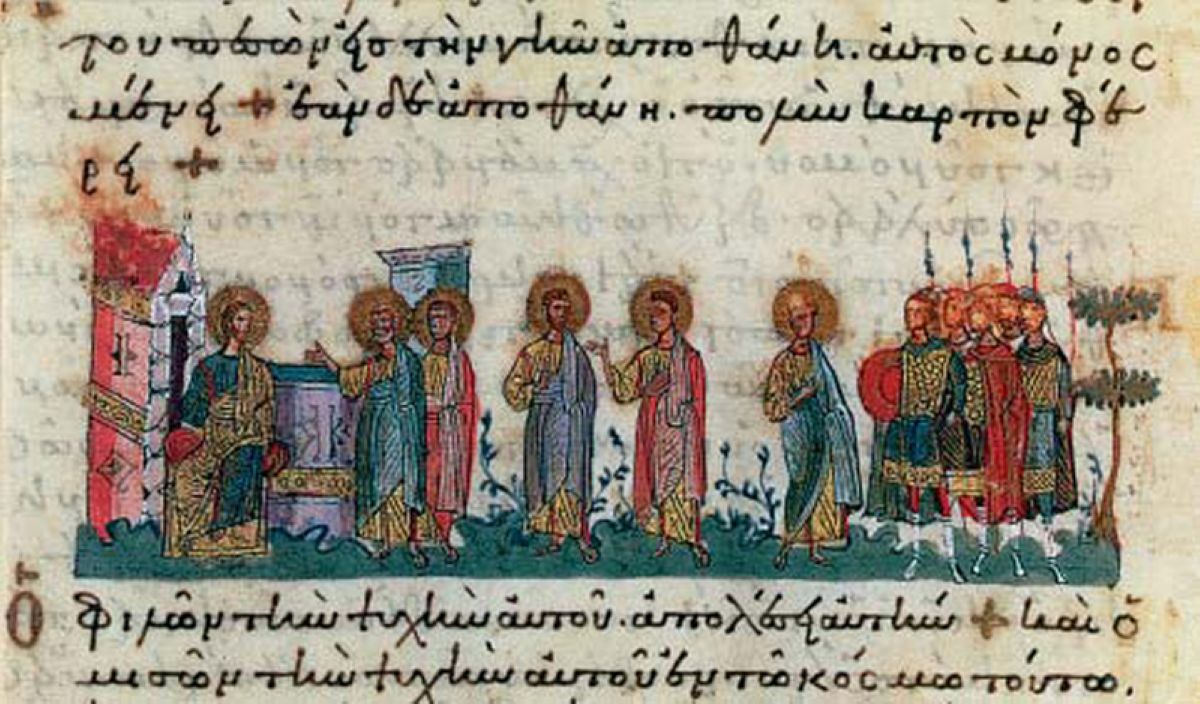 του πεσὼν εἰς τὴν γῆν ἀποθάνη. ἀυτὸς μόνος
μένει + ἐὰν δὲ ἀποθάνη. πολὺν καρπὸν φέ
ρει +
Ο φιλῶν τὴν ψυχὴν ἀυτοῦ. ἀπολέσει ἀυτήν + καὶ ὁ
μισῶν τὴν ψυχὴν ἀυτοῦ ἐν τῶ κόσμω τούτω.